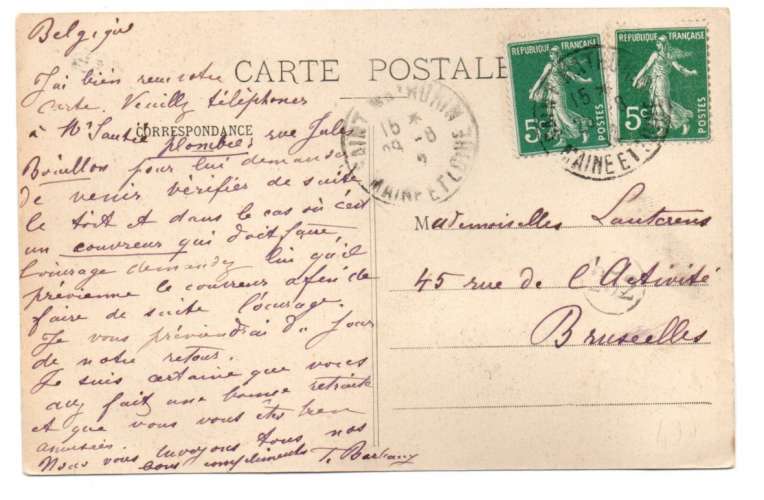 Belgique
J'ai bien reçu votre
carte. Veuillez téléphoner
à Mr plombier rue Jules
Bouillon pour lui demander
de venir vérifier de suite
le toit et dans le cas où c'est
un couvreur qui doit faire
l'ouvrage demandez lui qu'il
prévienne le couvreur afin de
faire de suite l'ouvrage.
Je vous préviendrai du jour
de notre retour.
Je suis certaine que vous
avez fait une bonne retraite
et que vous vous êtes bien
amusées.
Nous vous envoyons tous nos
bons compliments
CARTE POSTALE
CORRESPONDANCE
REPUBLIQUE FRANÇAISE
5c
POSTES
REPUBLIQUE FRANÇAISE
5c
POSTES
SAINT MATHURIN
15 *
8
MAINE ET LOIRE
Mademoiselles
45 rue de l'Activité
Bruxelles